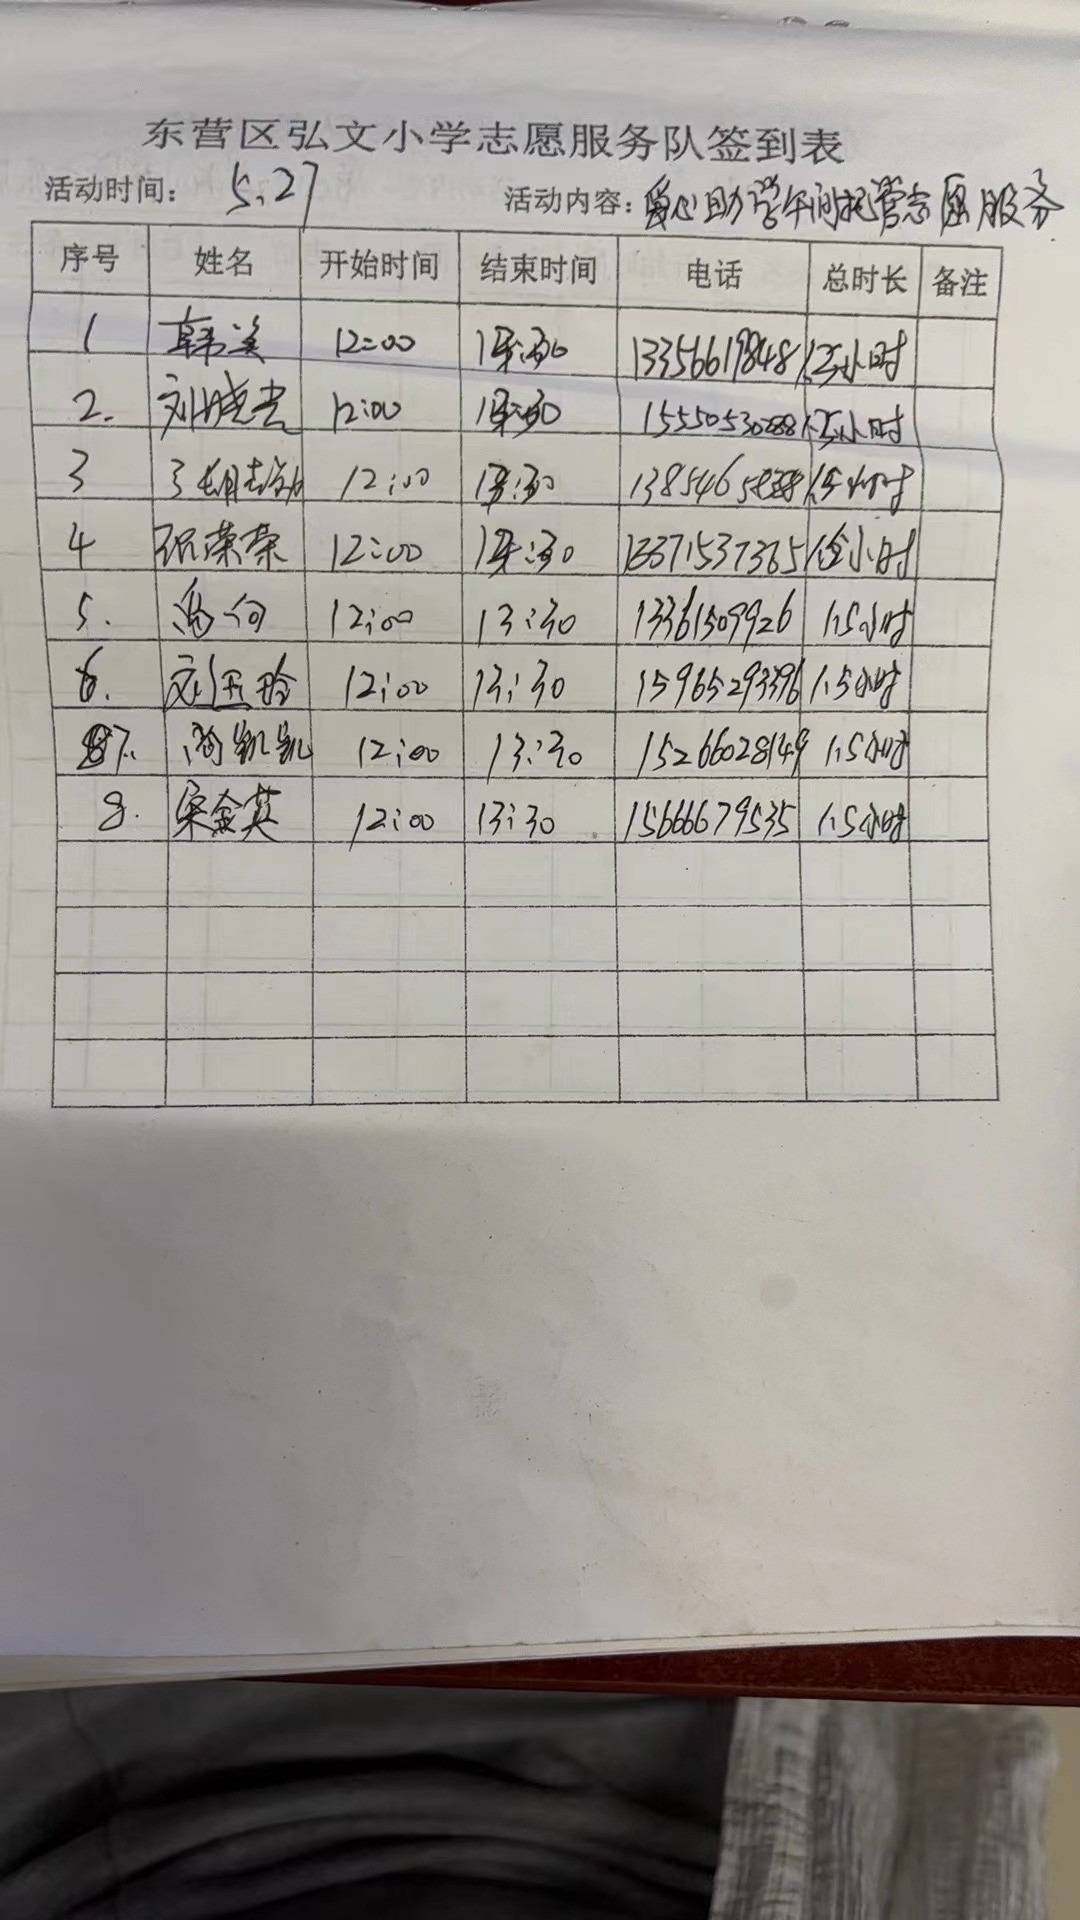 东营区弘文小学志愿服务队签到表
活动时间: 5.27 活动内容: 爱心助学午间托管志愿服务
序号 姓名 开始时间 结束时间 电话 总时长 备注
1 韩美 12:00 13:30 13356619848 1.5小时
2. 刘晓 12:00 13:30 1.5小时
3 12:00 13:30 1.5小时
4 张荣荣 12:00 13:30 13371537365 1.5小时
5. 12:00 13:30 13361509926 1.5小时
6. 刘玉玲 12:00 13:30 15965293396 1.5小时
7. 凯凯 12:00 13:30 15266028149 1.5小时
8. 宋金英 12:00 13:30 15666679535 1.5小时